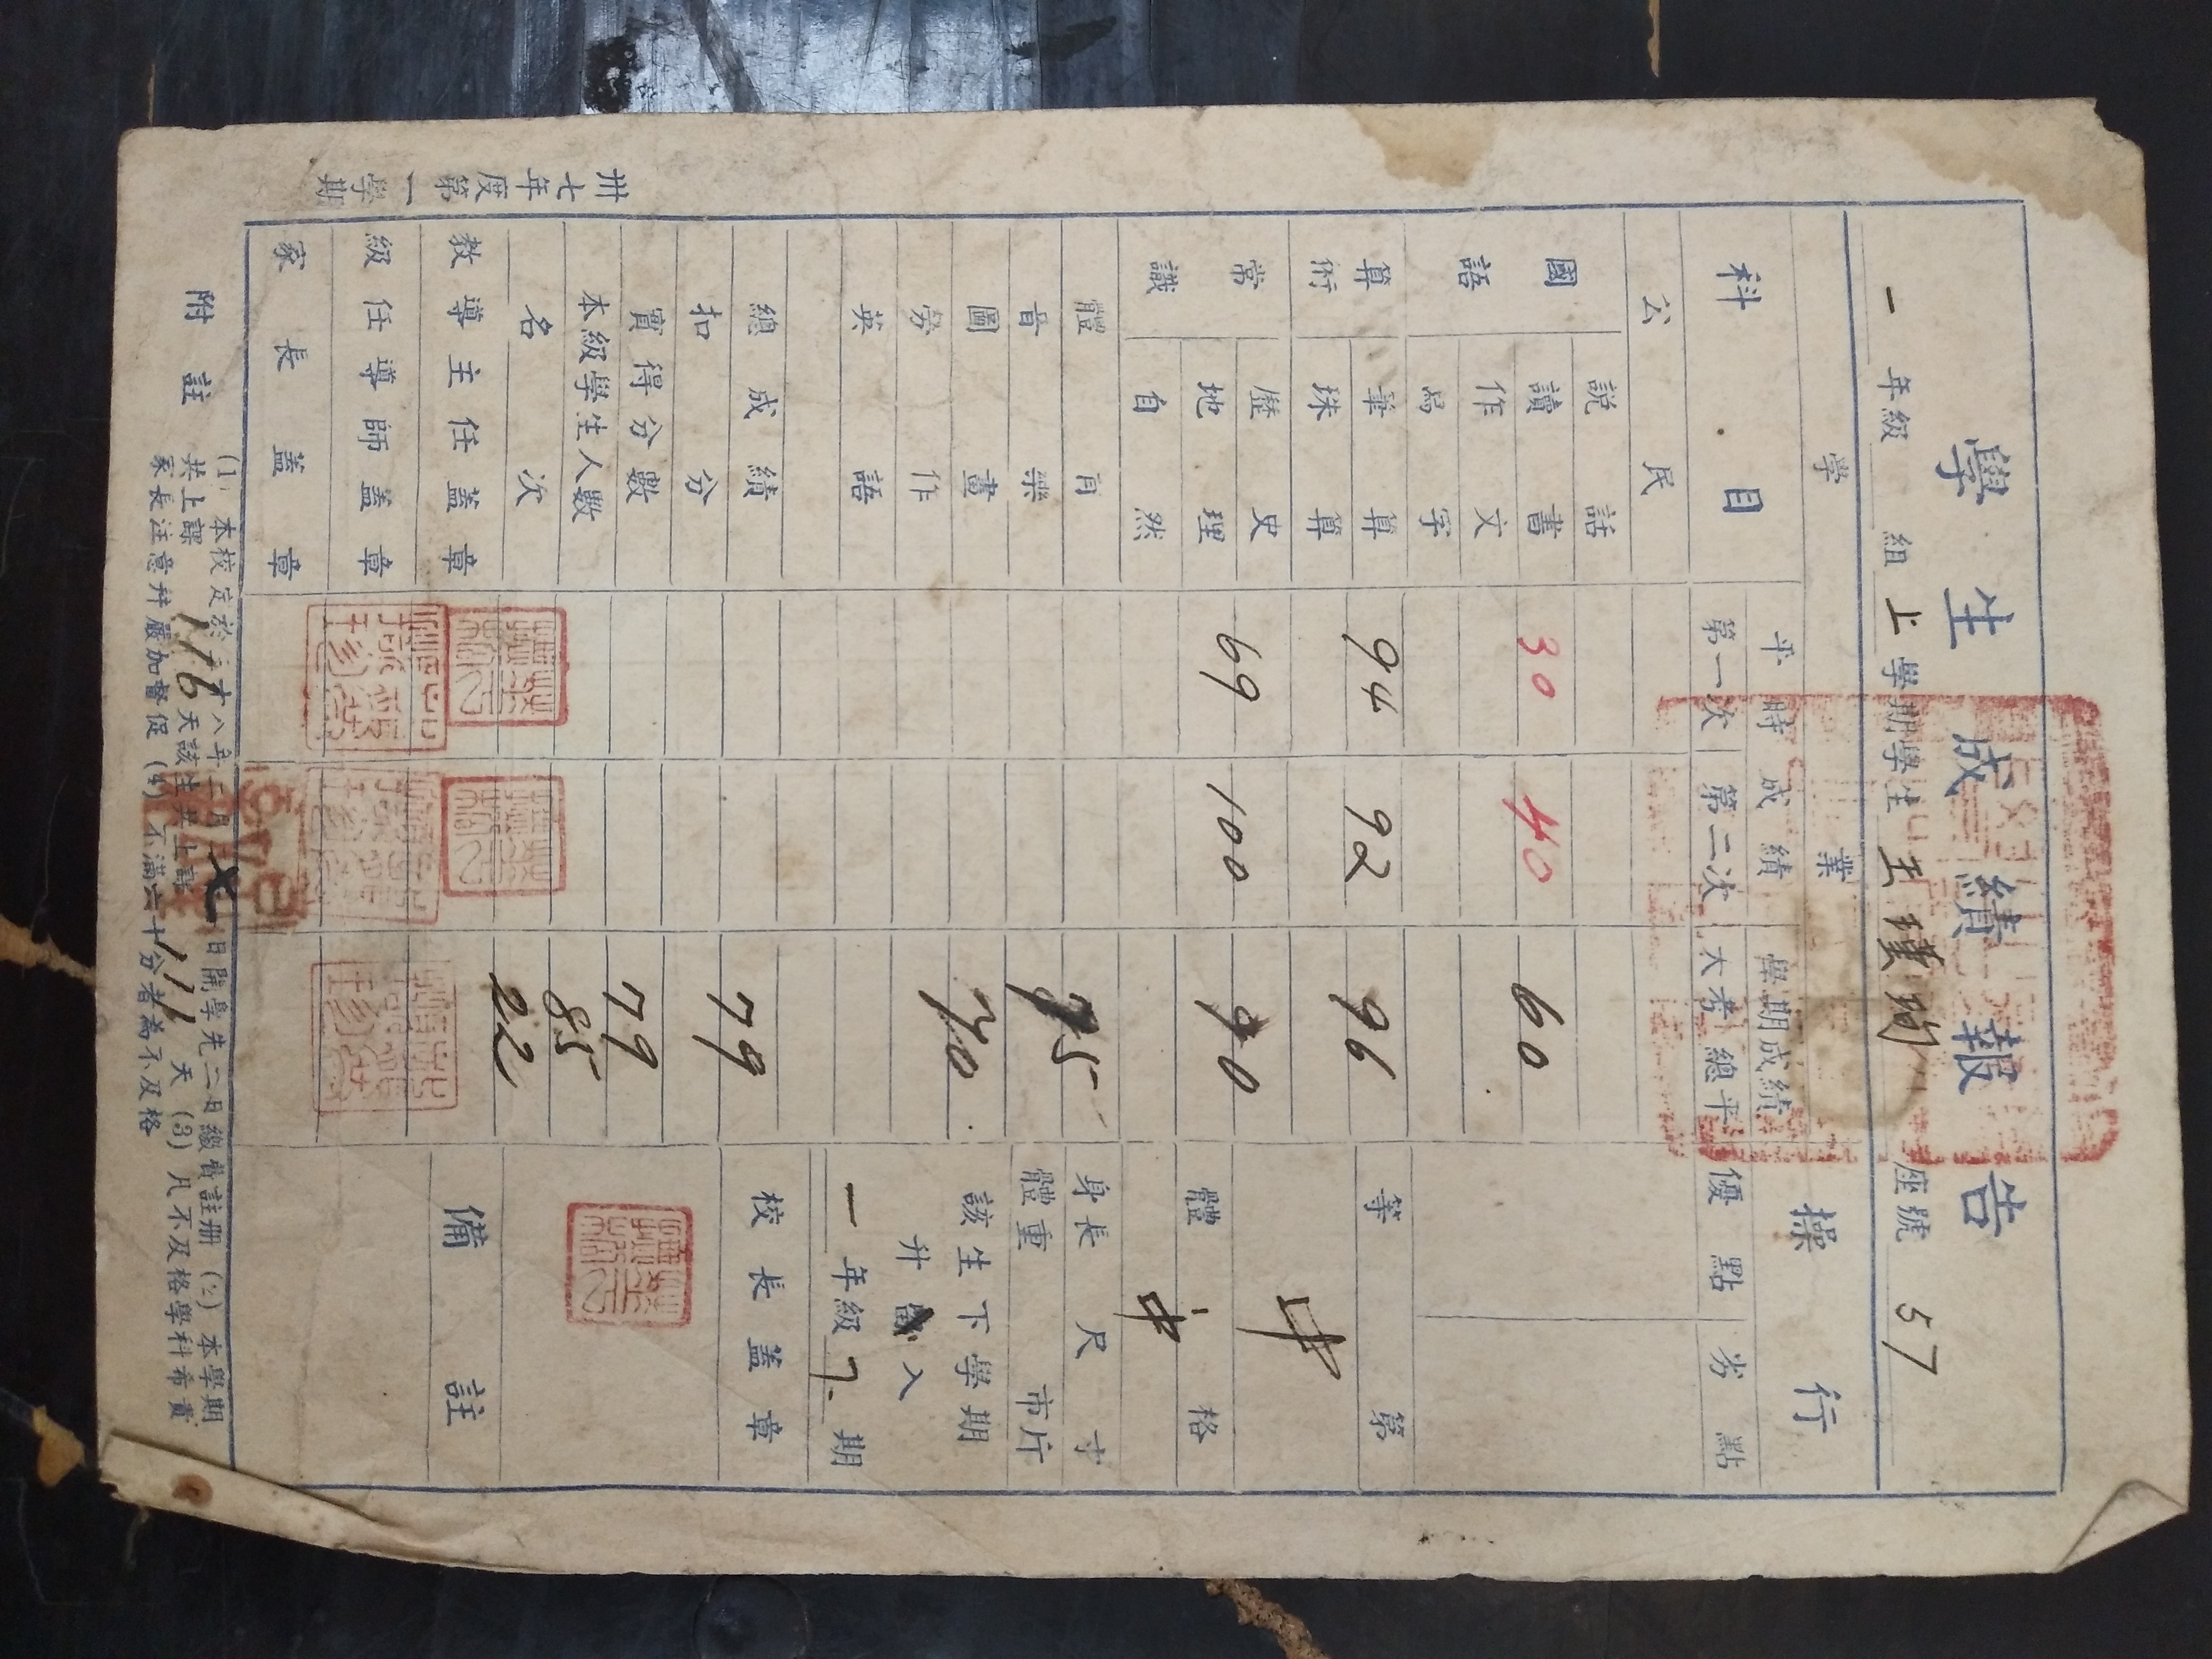 學生成績報告
一年級 組上學期學生王 珣 座號57
學業 操行
科目 平時成績 學期成績 優點 劣點
第一次 第二次 大考總平
公民
國語 說話
讀書 30 40 60
作文
寫字
算術 筆算 94 92 96 等第
珠算
常識 歷史 中
地理 69 100 90 體格
自然 中
體育 身長 尺 寸
音樂 75 體重 市斤
圖畫 70 該生下學期
勞作 升 入
英語 一年級下期
總成績 79 校長蓋章
扣分
實得分數 79
本級學生人數 85
名次 22 備註
教導主任蓋章
級任導師蓋章
家長蓋章
附註 (1) 本校定於三十八年二月 日開學先二日繳費註册 (2) 本學期
共上課116天該生共上課111天 (3) 凡不及格學科希貴
家長注意并嚴加督促 (4) 不滿六十分者為不及格
卅七年度第一學期